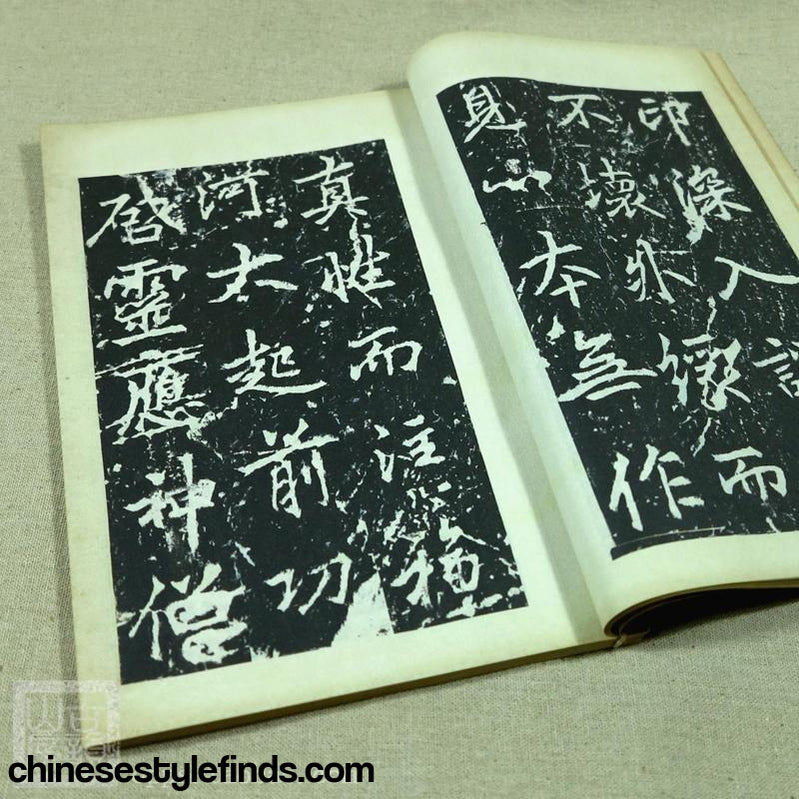 印深入證
不壞外緣而
見心本無作
真性而注福
河大起前功
啓靈應神僧
chinesestylefinds.com